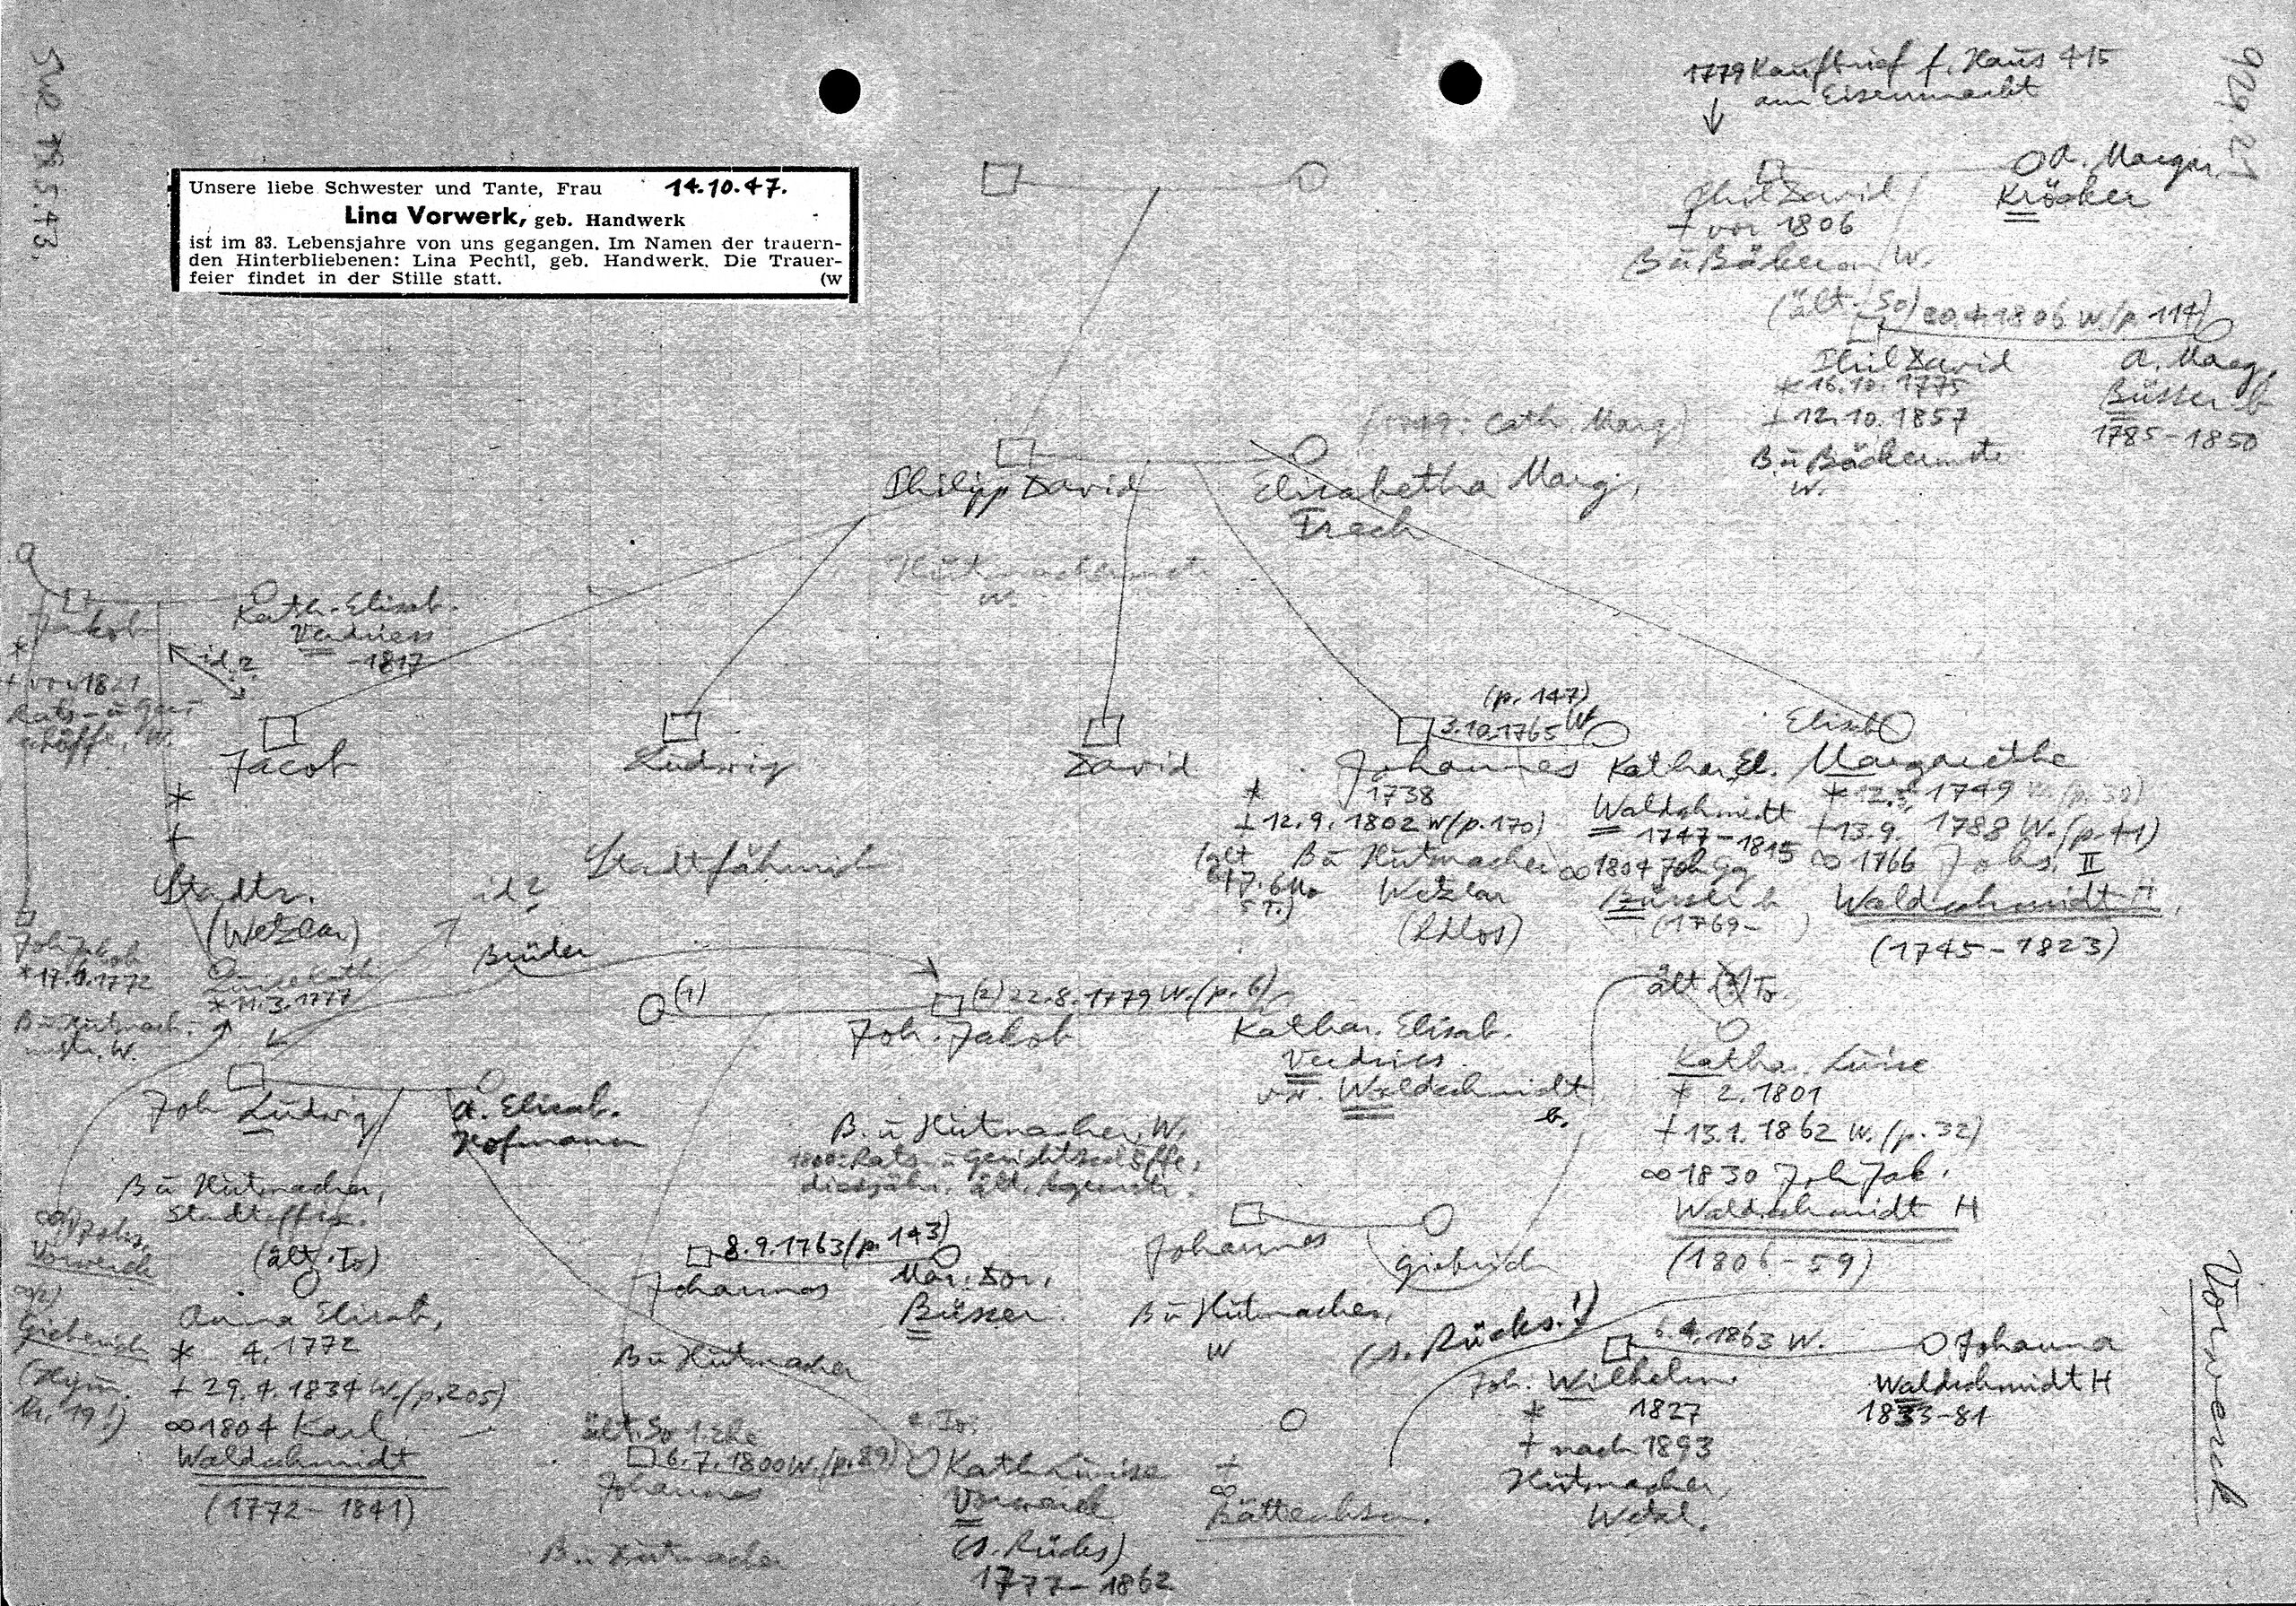 1779 Kaufbrief f. Haus 415
am Eisenmarkt
Unsere liebe Schwester und Tante, Frau 14.10.47.
Lina Vorwerk, geb. Handwerk
ist im 83. Lebensjahre von uns gegangen. Im Namen der trauern-
den Hinterbliebenen: Lina Pechtl, geb. Handwerk. Die Trauer-
feier findet in der Stille statt. (w
A. Margr.
Kröcker
Phil David
† vor 1806
B u Bäcker W.
(ält. So) 20.4.1806 W. (p. 114)
Phil David
* 16.10.1775
† 12.10.1857
B u Bäckermstr
W.
A. Marg.
Büsser
1785-1850
Cath. Marg)
Philipp David
Elisabetha Marg.
Frech
Hutmachermstr
W.
Jakob
*
† vor 1821
Rats- u Ger.
schöffe, W.
Kath. Elisab.
Verdriess
-1817
id.?
Jacob
*
†
Stadtr.
(Wetzlar)
Ludwig
Stadtfähnrich
David
(p. 147)
3.10.1765 W
Johannes
* 1738
† 12.9.1802 W (p. 170)
B u Hutmacher
Wetzlar
Kathar. El.
Waldschmidt
1747-1815
∞ 1804 Joh Gg
(1769- )
Elisab
Margarethe
1749 W. (p. 30)
† 13.9. 1788 W. (p. 41)
∞ 1766 Johs. II
Waldschmidt H
(1745-1823)
id?
Brüder
Joh Jakob
* 17.6.1772
B u Hutmach.
mstr. W.
Luise Kath
* 11.3.1777
(1)
(2) 22.8.1779 W. (p. 6)
Joh. Jakob
Kathar. Elisab.
Verdries
vw. Waldschmidt
b.
B. u Hutmacher, W.
1800: Rats- u Gerichtsschöffe,
ält. To.
Katha. Luise
* 2. 1801
† 13.1. 1862 W. (p. 32)
∞ 1830 Joh Jak.
Waldschmidt H
(1806-59)
Joh Ludwig
A. Elisab.
Hofmann
B u Hutmacher,
(ält. To)
Anna Elisab.
* 4. 1772
† 29.4.1834 W. (p. 205)
∞ 1804 Karl
Waldschmidt
(1772-1841)
∞ 1) Johs.
Vorwerk
∞ 2)
8.9.1763 (p. 143)
Johannes
Mar. Dor.
Büsser
B u Hutmacher
Johannes
B u Hutmacher,
W
(s. Rücks.!)
6.4.1863 W.
Joh. Wilhelm
* 1827
† nach 1893
Hutmacher,
Wetzl.
Johanna
Waldschmidt H
1833-81
ält. So 1. Ehe
6.7.1800 W. (p. 89)
Johannes
B u Hutmacher
Kath Luise
Vorwerk
(s. Rücks)
1777-1862
†
∞
Vorwerk